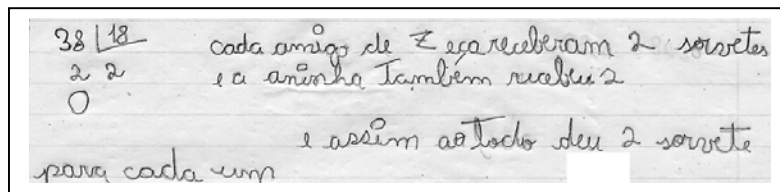 38 18 cada amigo de Zeca receberam 2 sorvetes
2 2 e a aninha Também recebeu 2
0
e assim ao todo deu 2 sorvete
para cada um